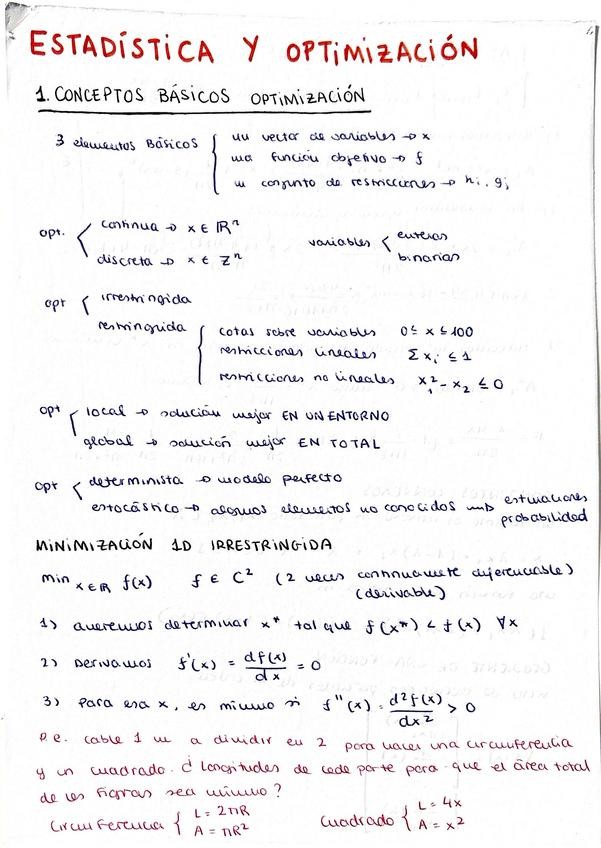 ESTADÍSTICA Y OPTIMIZACIÓN
1. CONCEPTOS BÁSICOS OPTIMIZACIÓN
3 elementos BÁSICOS { un vector de variables → x
una función objetivo → f
un conjunto de restricciones → hi, gj
opt. { continua → x ∈ ℝⁿ
discreta → x ∈ ℤⁿ
variables { enteras
binarias
opt { irrestringida
restringida { cotas sobre variables 0 ≤ x ≤ 100
restricciones lineales Σxi ≤ 1
restricciones no lineales x₁² - x₂ ≤ 0
opt { local → solución mejor EN UN ENTORNO
global → solución mejor EN TOTAL
opt { determinista → modelo perfecto
estocástico → algunos elementos no conocidos ⇝ estimaciones
probabilidad
MINIMIZACIÓN 1D IRRESTRINGIDA
min x∈ℝ f(x) f ∈ C² (2 veces continuamente diferenciable)
(derivable)
1) queremos determinar x* tal que f(x*) < f(x) ∀x
2) Derivamos f'(x) = df(x)/dx = 0
3) Para esa x, es mínimo si f''(x) = d²f(x)/dx² > 0
P.e. cable 1 m a dividir en 2 para hacer una circunferencia
y un cuadrado. ¿Longitudes de cada parte para que el área total
de las figuras sea mínimo?
Circunferencia { L = 2πR
A = πR²
Cuadrado { L = 4x
A = x²